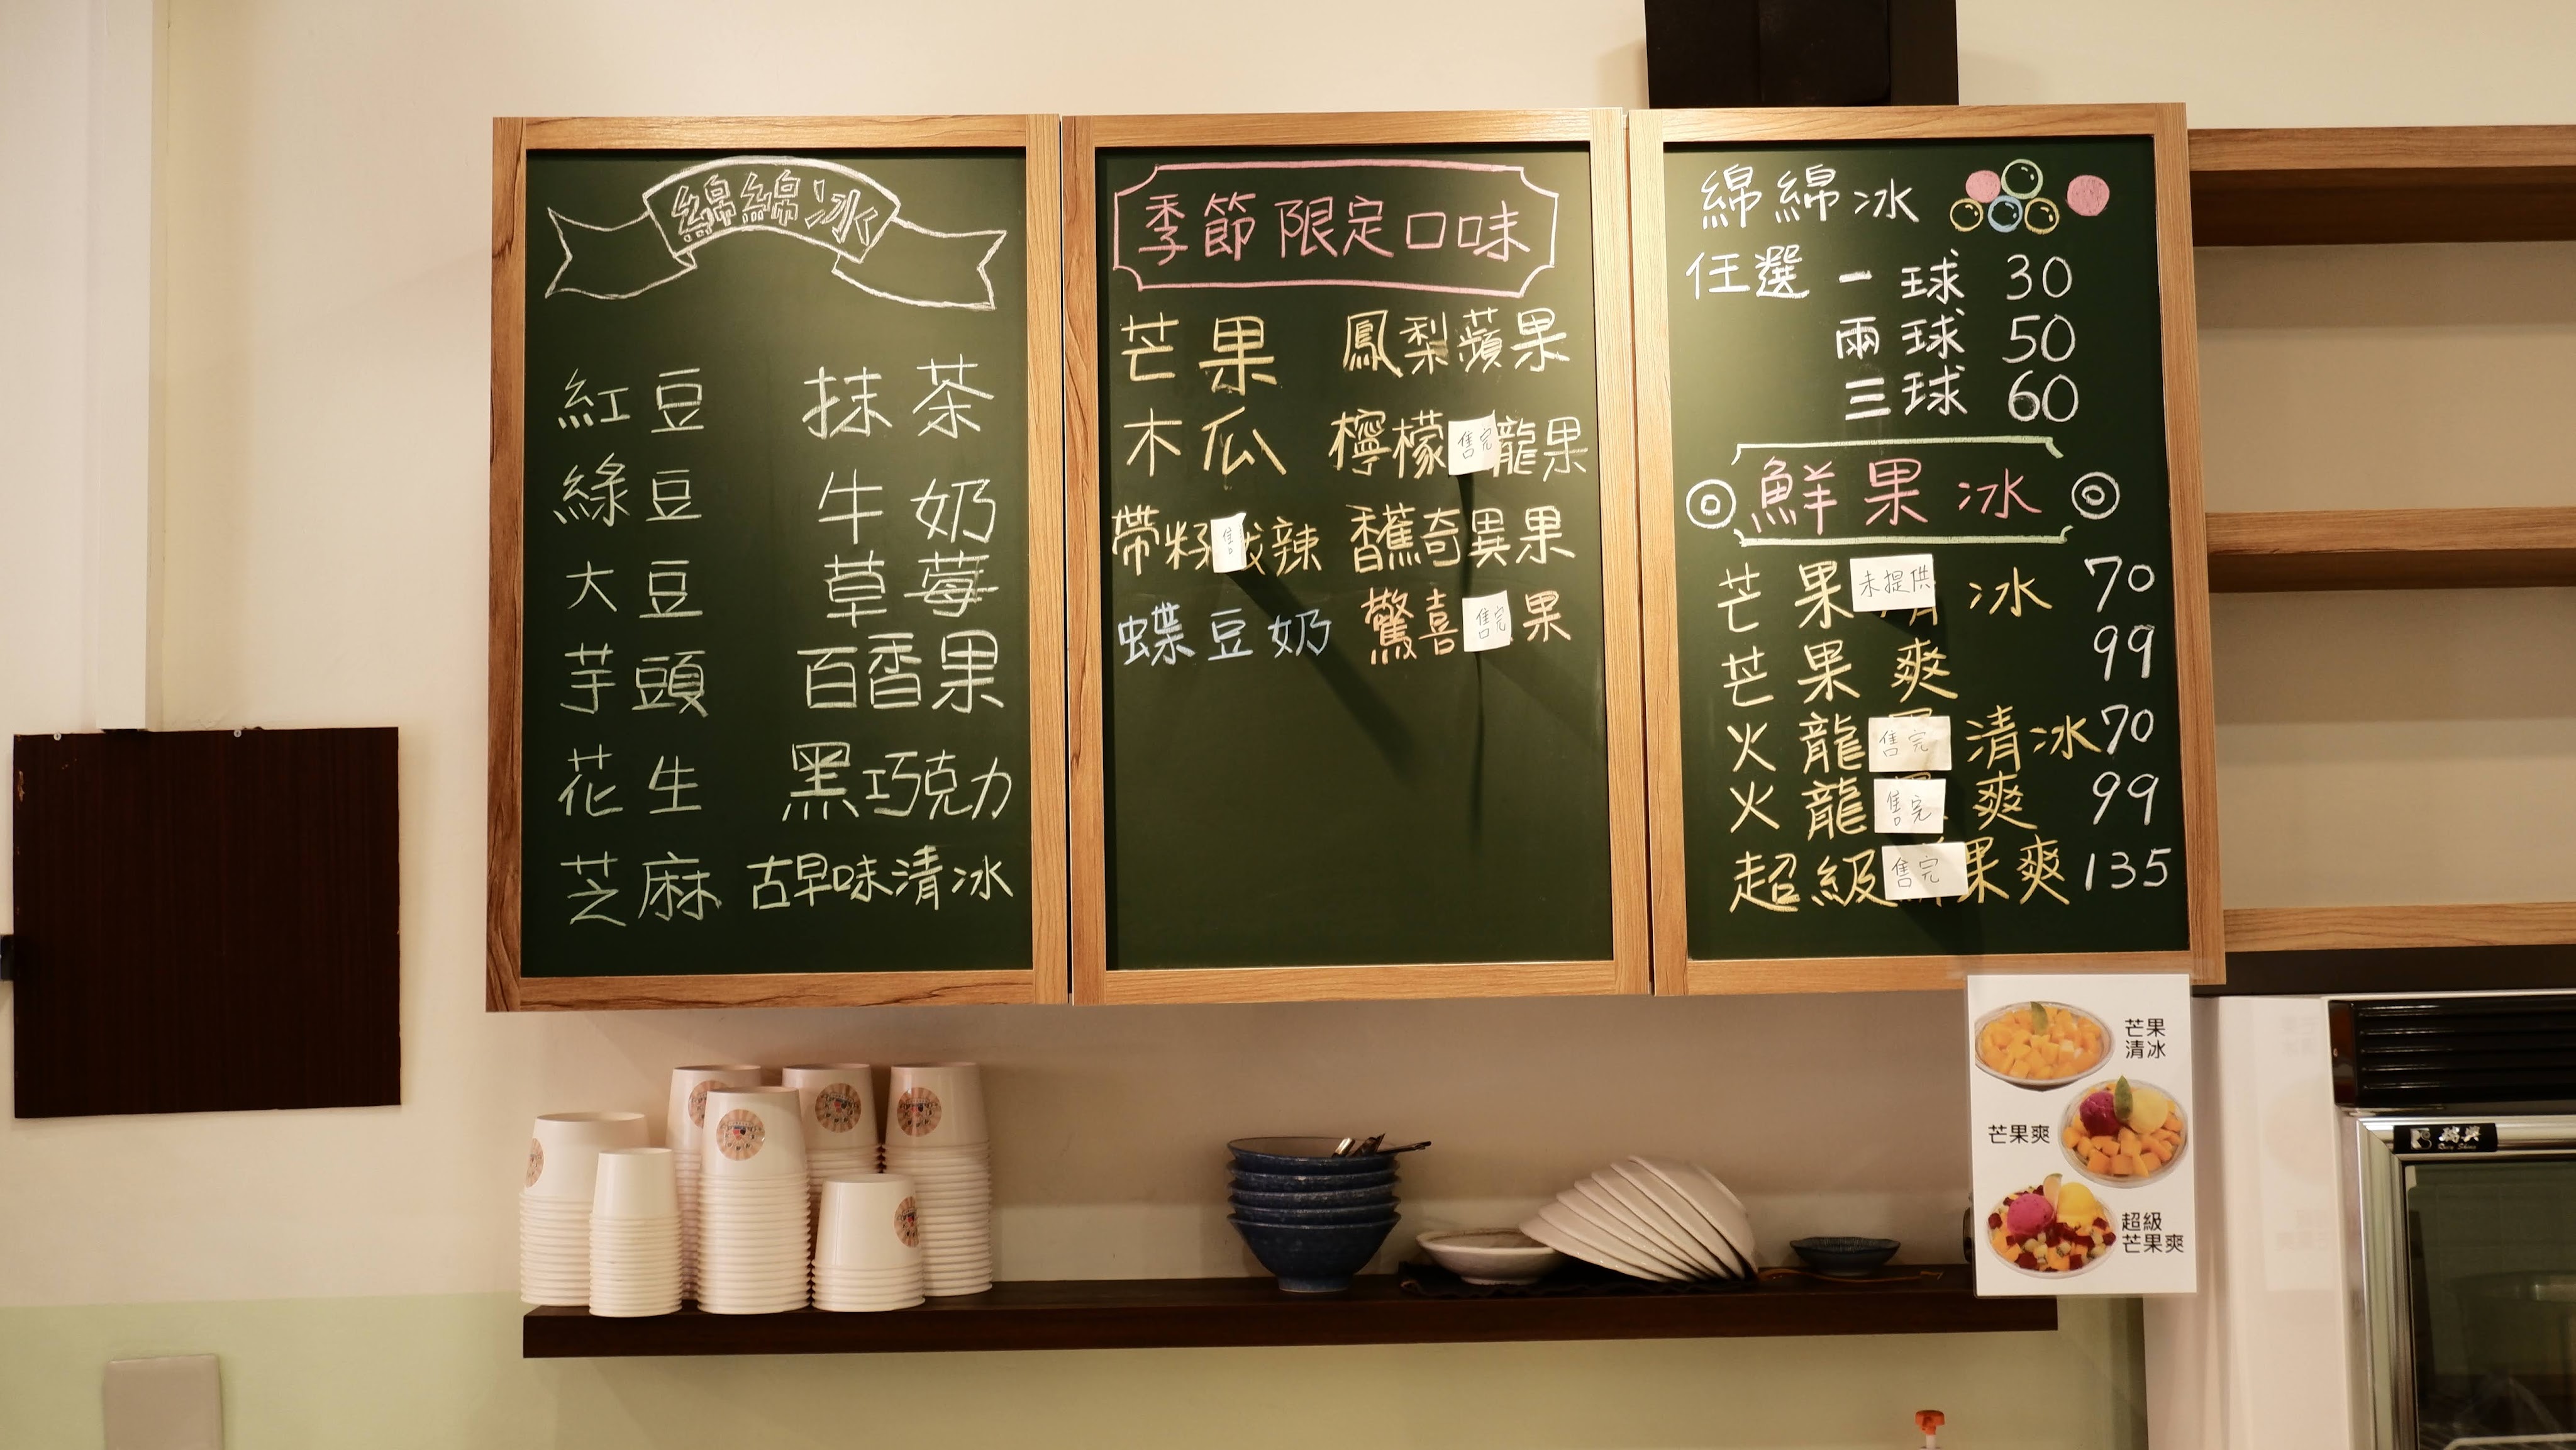 綿綿冰
紅豆 抹茶
綠豆 牛奶
大豆 草莓
芋頭 百香果
花生 黑巧克力
芝麻 古早味清冰
季節限定口味
芒果 鳳梨蘋果
木瓜 檸檬售完龍果
帶籽售辣 香蕉奇異果
蝶豆奶 驚喜售完果
綿綿冰
任選一球 30
兩球 50
三球 60
鮮果冰
芒果未提供冰 70
芒果爽 99
火龍售完清冰 70
火龍售完爽 99
超級售完果爽 135
芒果
清冰
芒果爽
超級
芒果爽